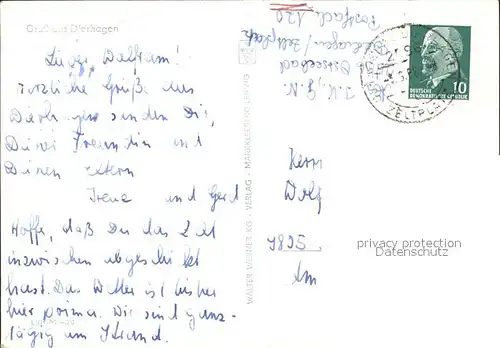 Gruß aus Dierhagen
Lieber Wolfram!
Herzliche Grüße aus
Dierhagen senden Dir,
Deiner Freundin und
Deinen Eltern
Irene und Gerd
Hoffe, daß Du das Zelt
inzwischen abgeschickt
hast. Das Wetter ist bisher
hier prima. Wir sind ganz-
tägig am Strand.
WALTER WERNER KG · VERLAG · MARKKLEEBERG b. LEIPZIG
Ostseebad
Dierhagen/Zeltplatz
Postfach 120
ZELTPLATZ
DEUTSCHE
DEMOKRATISCHE REPUBLIK
10
Herrn
Wolf
7895
Am
privacy protection
Datenschutz